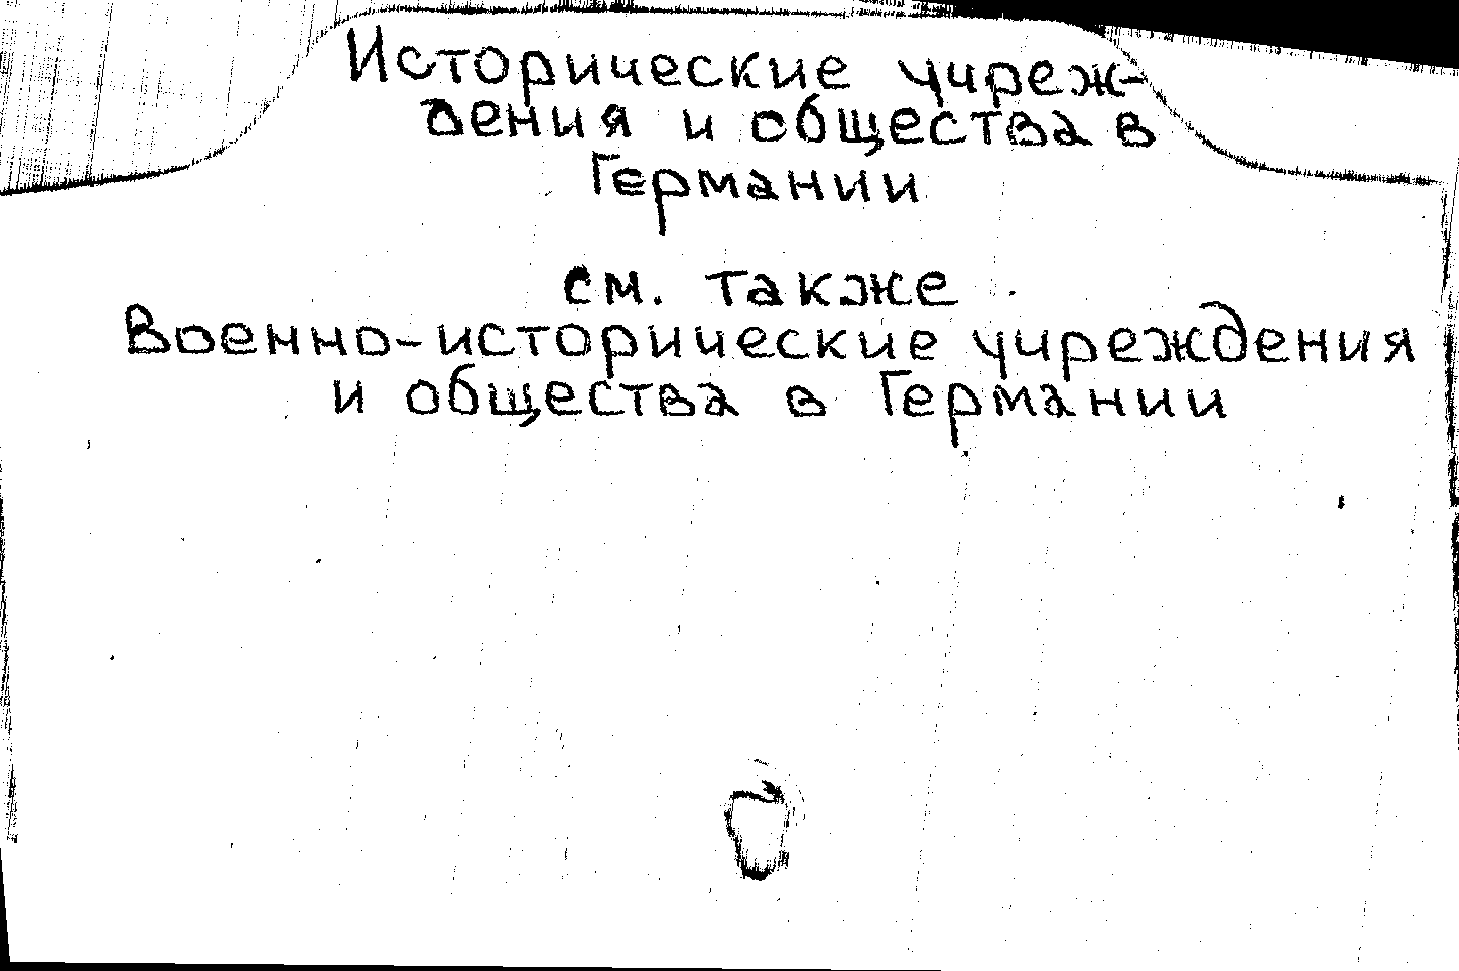 Исторические учреж-
дения и общества в
Германии
см. также
Военно-исторические учреждения
и общества в Германии